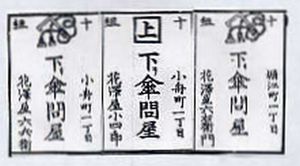 十組
堀江町一丁目
下り傘問屋
花澤屋六右衛門
上
小舟町一丁目
下り傘問屋
花澤屋小四郎
十組
小舟町一丁目
下り傘問屋
花澤屋六兵衛